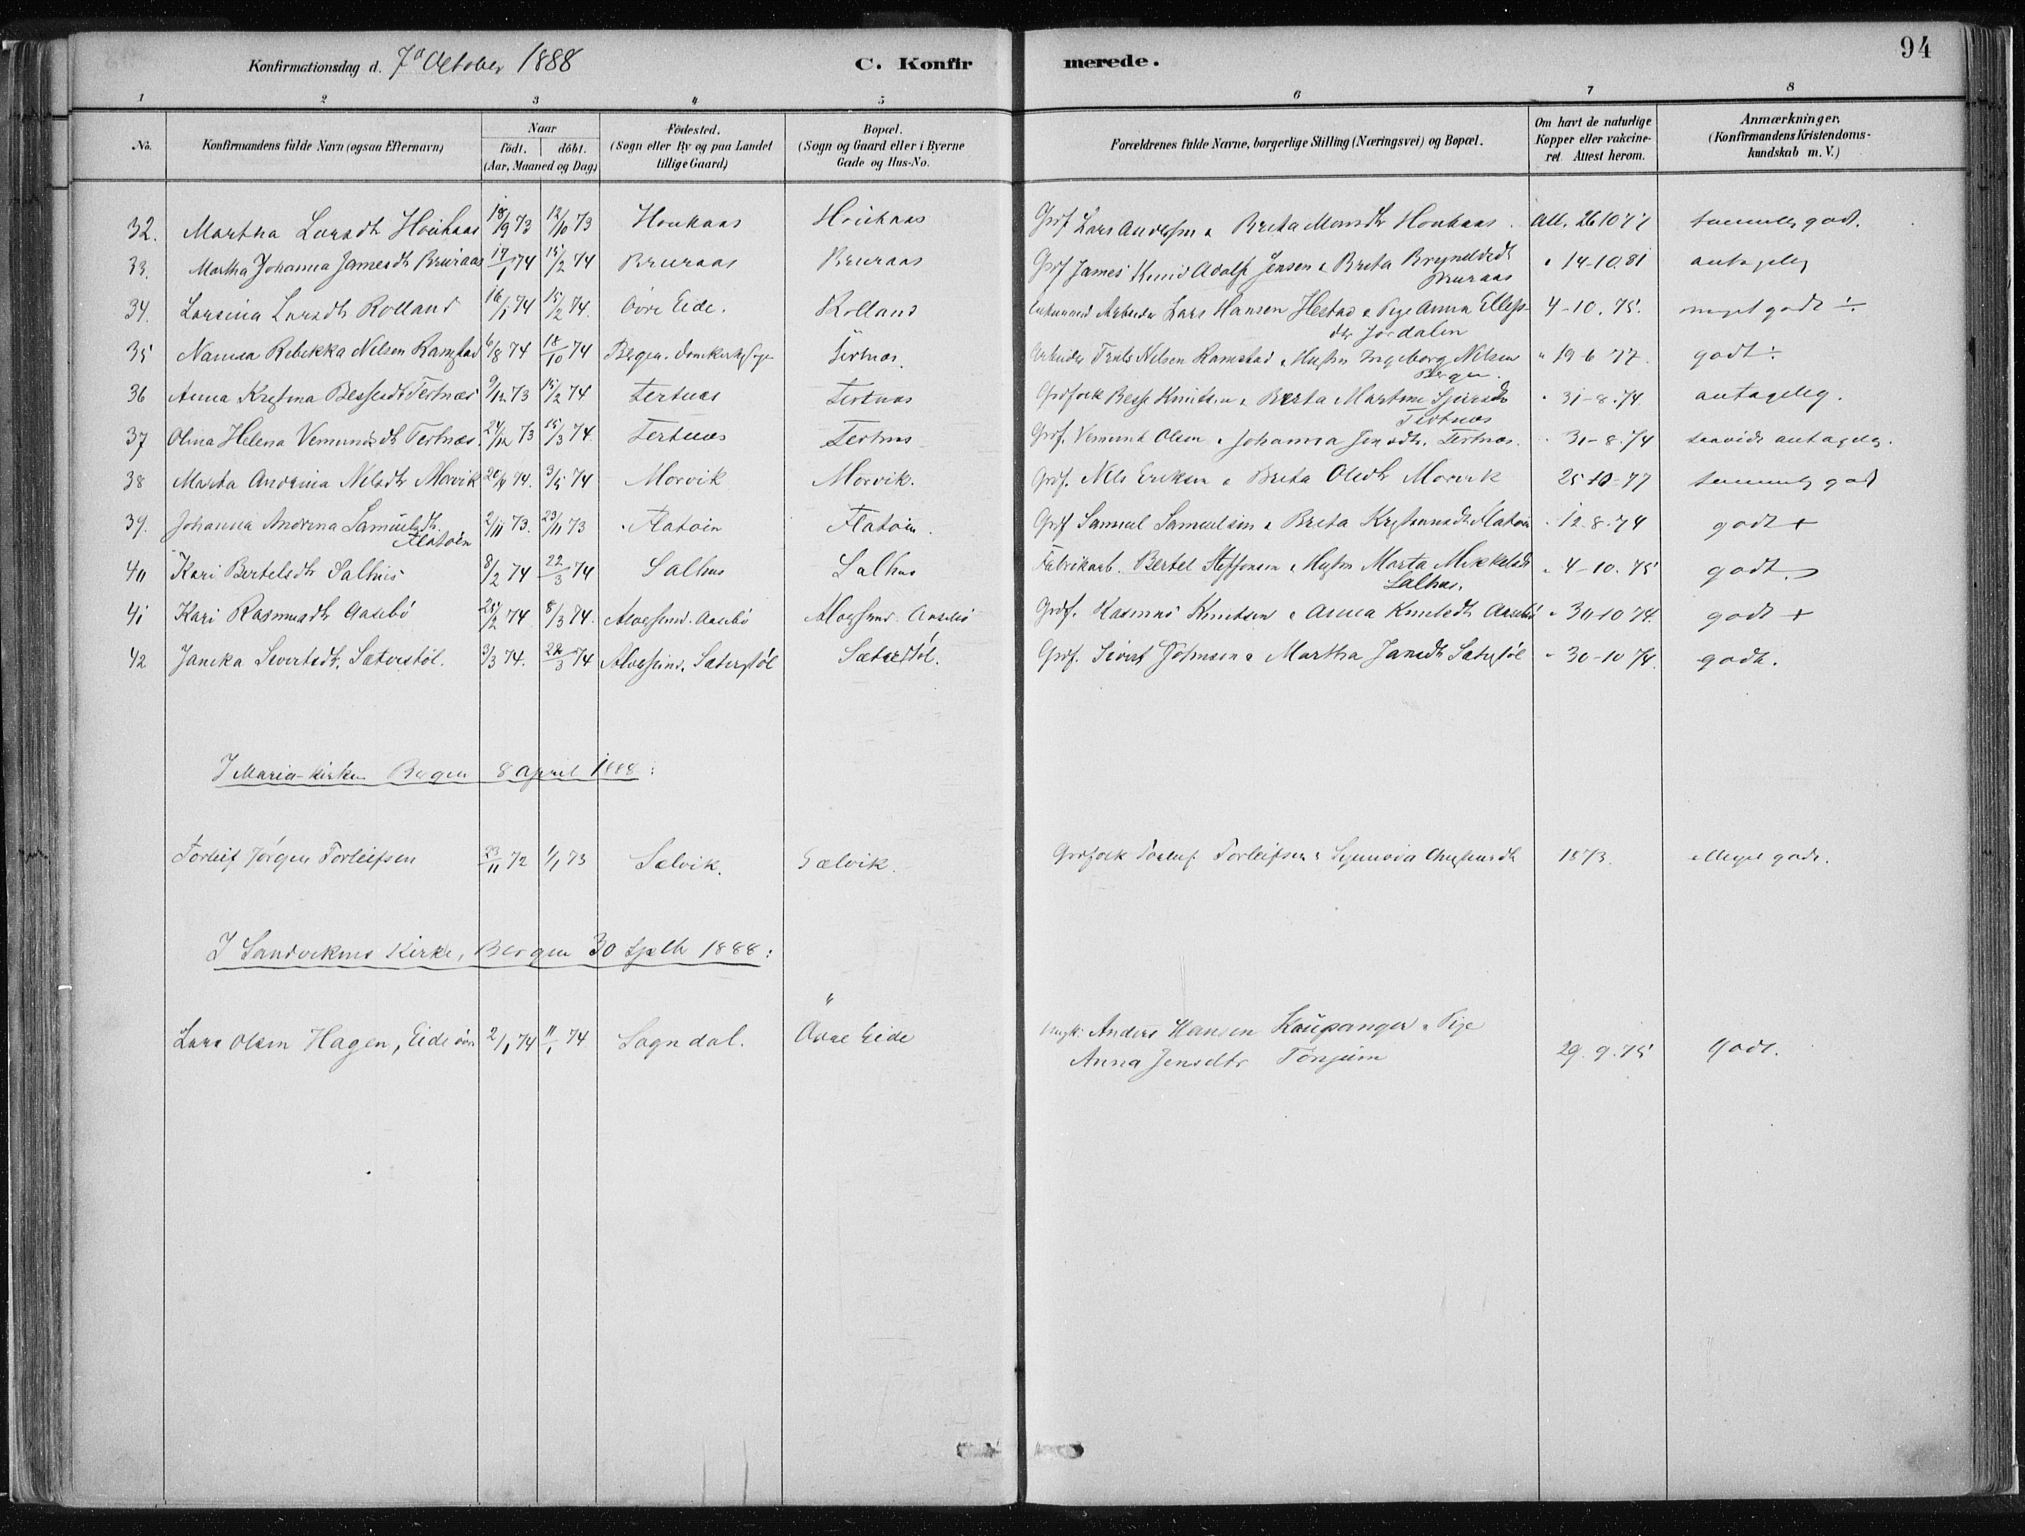 94
Konfirmationsdag d. 7d October 1888 C. Konfir merede.
1 2 3 4 5 6 7 8
No. Konfirmandens fulde Navn (ogsaa Efternavn) Naar födt. döbt. (Aar, Maaned og Dag) Födested. (Sogn eller By og paa Landet tillige Gaard) Bopæl. (Sogn og Gaard eller i Byerne Gade og Hus-No. Forældrenes fulde Navne, borgerlige Stilling (Næringsvei) og Bopæl. Om havt de naturlige Kopper eller vakcineret. Attest herom. Anmærkninger, (Konfirmandens Kristendomskundskab m. V.)
32. Martha Larsdtr Houkaas 18/9 73 12/10 73 Houkaas Houkaas Grdf Lars Anderssen & Brita Monsdtr Houkaas. Att. 26 10 77 temmelig godt.
33. Martha Johanna Jamesdtr Bruraas 17/1 74 15/2 74 Bruraas Bruraas Grdf James Knud Adolf Jensen & Brita Brynildsdtr Bruraas " 14-10.81 antagelig
34. Larsina Larsdtr Rolland 16/1 74 15/2 74. Övre Eide. Rolland Arbeider Lars Hansen Hestad & Pige Anna Ellefsdtr Jordalen 4-10.75. meget godt ÷
35 Nanna Rebekka Nilsen Ramstad 6/8 74 18/10 74 Bergen. Domkirkesogn Tertnæs. Arbeider Truls Nilsen Ramstad & Hustru Ingeborg Nilsen Bergen. " 19-6-77. godt ÷
36 Anna Kristina Bessesdtr Tertnæs 9/12 73 15/2 74 Tertnæs Tertnæs Grdfolk Besse Knutsen & Berta Martine Sjursdtr Tertnæs " 31-8.74. antagelig.
37 Olina Helena Vemundsdtr Tertnæs. 24/12 73 15/3 74. Tertnæs Tertnæs Grdf. Vemund Olsen & Johanna Jensdtr. Tertnæs. " 31-8.74 saavidt antagelig.
38 Marta Andrina Nilsdtr Morvik 20/4 74. 3/5 74 Morvik Morvik. Grdf. Nils Eriksen & Brita Olsdtr Morvik 25-10-77 temmelig godt
39. Johanna Andrina Samuelsdtr. Flatøen 2/11 73. 23/11 73 Flatøen Flatøen. Grdf Samuel Samuelsen & Brita Kristensdtr Flatøen " 12-8-74 godt +
40 Kari Bertelsdtr Salhus 8/2 74 22/3 74 Salhus Salhus Fabrikarb. Bertel Steffensen & Hustru Marta Mikkelsdtr Salhus. " 4-10.75 godt
41 Kari Rasmusdtr Aasebö 25/2 74 8/3 74. Alversund. Aasebö Alversund. Aasebö Grdf. Rasmus Knutsen & Anna Knutsdtr Aasebö " 30-10 74. godt +
42 Janika Sivertsdtr. Sæterstöl. 3/3 74. 22/3 74 Alversund. Sæterstöl Sæterstöl. Grdf. Sivert Johnsen & Martha Jansdtr Sæterstöl " 30-10 74. godt.
I Maria-kirken Bergen 8 April 1888:
Torleif Jörgen Torleifsen 23/11 72 1/1 73 Sælvik. Sælvik. Grdfolk Torleif Torleifsen & Synneva Christensdtr 1873. Meget godt.
I Sandvikens Kirke, Bergen 30 Septb 1888:
"
Lars Olsen Hagen, Eide øvre 2/1 74 11/1 74 Sogndal. Øvre Eide Ungk. Anders Hansen Kaupanger & Pige
Anna Jensdtr Tonjum 29.9.75 Godt.